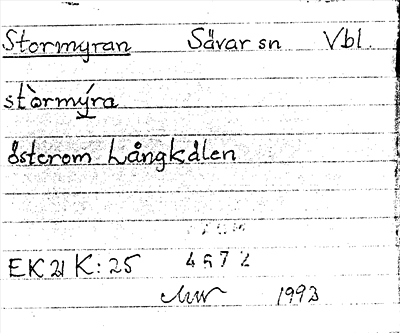 Stormyran Sävar sn Vbl.
stòrmýra
österom Långkälen
EK 21 K: 25 4572
1993